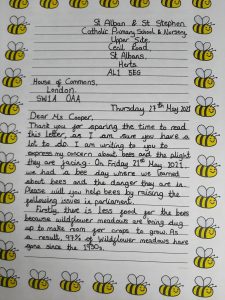 St Alban & St Stephen
Catholic Primary School & Nursery,
Upper Site,
Cecil Road,
St Albans,
Herts
AL1 5EG
House of Commons,
London.
SW1A 0AA
Thursday 27th May 2021
Dear Ms Cooper,
Thank you for sparing the time to read
this letter, as I am sure you have a
lot to do. I am writing to you to
express my concern about bees and the plight
they are facing. On Friday 21st May 2021,
we had a bee day where we learned
about bees and the danger they are in.
Please will you help bees by raising the
following issues in parliament.
Firstly, there is less food for the bees
because wildflower meadows are being dug
up to make room for crops to grow. As
a result, 97% of wildflower meadows have
gone since the 1930s.